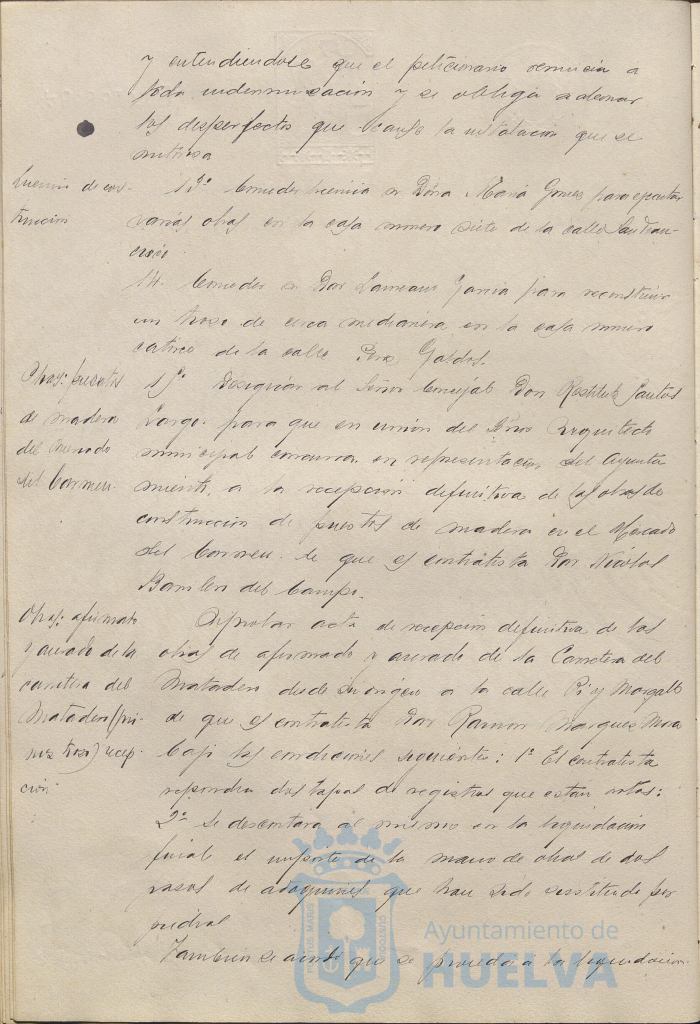 y entendiendose que el peticionario renuncia a
toda indemnización y se obliga a
los desperfectos que cause la instalación que se
interesa
Licencia de cons-
trucción
13º Conceder licencia a Doña María Gomez para ejecutar
varias obras en la casa numero siete de la calle San Fran-
cisco.
14. Conceder a Don Laureano Garcia para reconstruir
un trozo de cerca medianera en la casa numero
catorce de la calle Perez Galdos.
Obras: puestos
de madera
del Mercado
del Carmen.
15º Designar al Señor Concejal Don Restituto Santos
Largo para que en unión del Señor Arquitecto
municipal concurra en representacion del Ayunta
miento, a la recepción definitiva de las obras de
construcción de puestos de madera en el Mercado
del Carmen de que es contratista Don Nicolas
del Campo.
Obras: afirmado
y acerado de la
carretera del
Matadero (pri-
mer trozo) recep-
ción
Aprobar acta de recepción definitiva de las
obras de afirmado y acerado de la Carretera del
Matadero desde su origen a la calle Pi y Margall
de que es contratista Don Ramon Marques Mora
bajo las condiciones siguientes: 1ª El contratista
repondra dos tapas de registros que estan rotas:
2ª Se descontara al mismo en la liquidacion
final el importe de la mano de obra de dos
rasas de adoquines que han sido sustituido por
piedras
Tambien se acordó que se proceda a la liquidacion
PORTUS MARIS
CUSTODIA
Ayuntamiento de
HUELVA